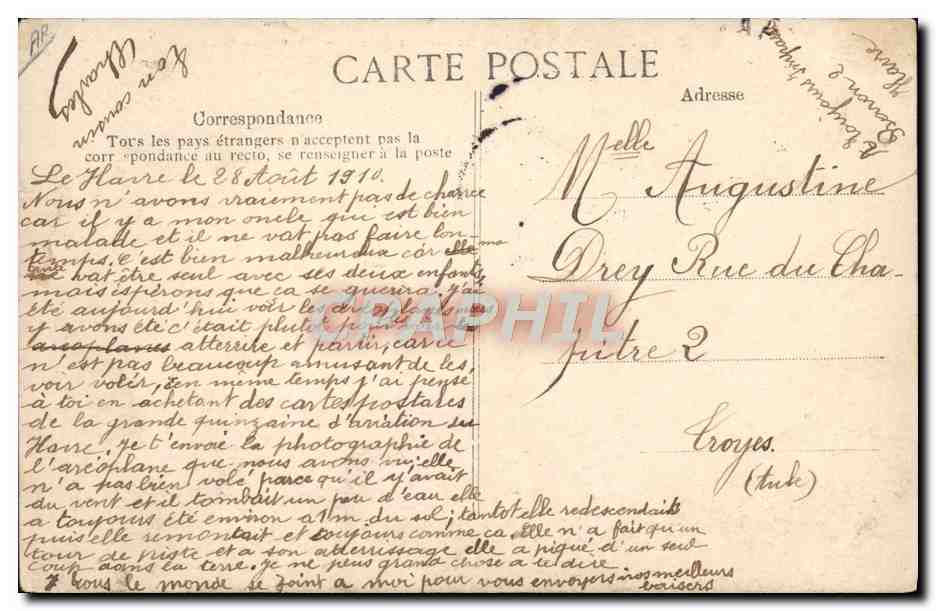 AR
Ton cousin
Charles
CARTE POSTALE
Correspondance
Tous les pays étrangers n'acceptent pas la
correspondance au recto, se renseigner à la poste
Adresse
A toujours
Havre
Le Havre le 28 Août 1910.
Nous n'avons vraiement pas de chance
car il y a mon oncle qui est bien
malade et il ne vat pas faire lon-
temps. C'est bien malheureux car elle ma
tante vat être seul avec ses deux enfants
mais ispérons que ca se guerira. J'ai
été aujourd'hui voir les aréoplanes nous
y avons été c'était plutôt pour voir les
areoplanes atterrire et partir, car ce
n'est pas beaucoup amusant de les
voir voler, en même temps j'ai pensé
à toi en achetant des cartes postales
de la grande quinzaine d'aviation du
Havre. Je t'envoie la photographie de
l'aréoplane que nous avons vu; elle
n'a pas bien volé parce qu'il y avait
du vent et il tombait un peu d'eau elle
a toujours été environ a 1m du sol; tantot elle redescendait
puis elle remontait et toujours comme ca. Elle n'a fait qu'un
tour de piste et a son atterrissage elle a piqué d'un seul
coup dans la terre. Je ne peus grand chose a te dire
tous le monde se joint a moi pour vous envoyers nos meilleurs
baisers
Melle Augustine
Drey Rue du Cha-
pitre 2
Troyes.
(Aube)
CPAPHIL